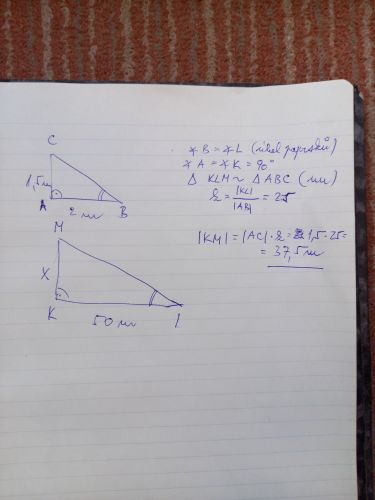 C
1,5m
A
2 m
B
M
X
K
50 m
L
∢ B = ∢ L (úhel paprsků)
∢ A = ∢ K = 90°
Δ KLM ~ Δ ABC (uu)
k = |KL| / |AB| = 25
|KM| = |AC| · k = 1,5 · 25 =
= 37,5 m